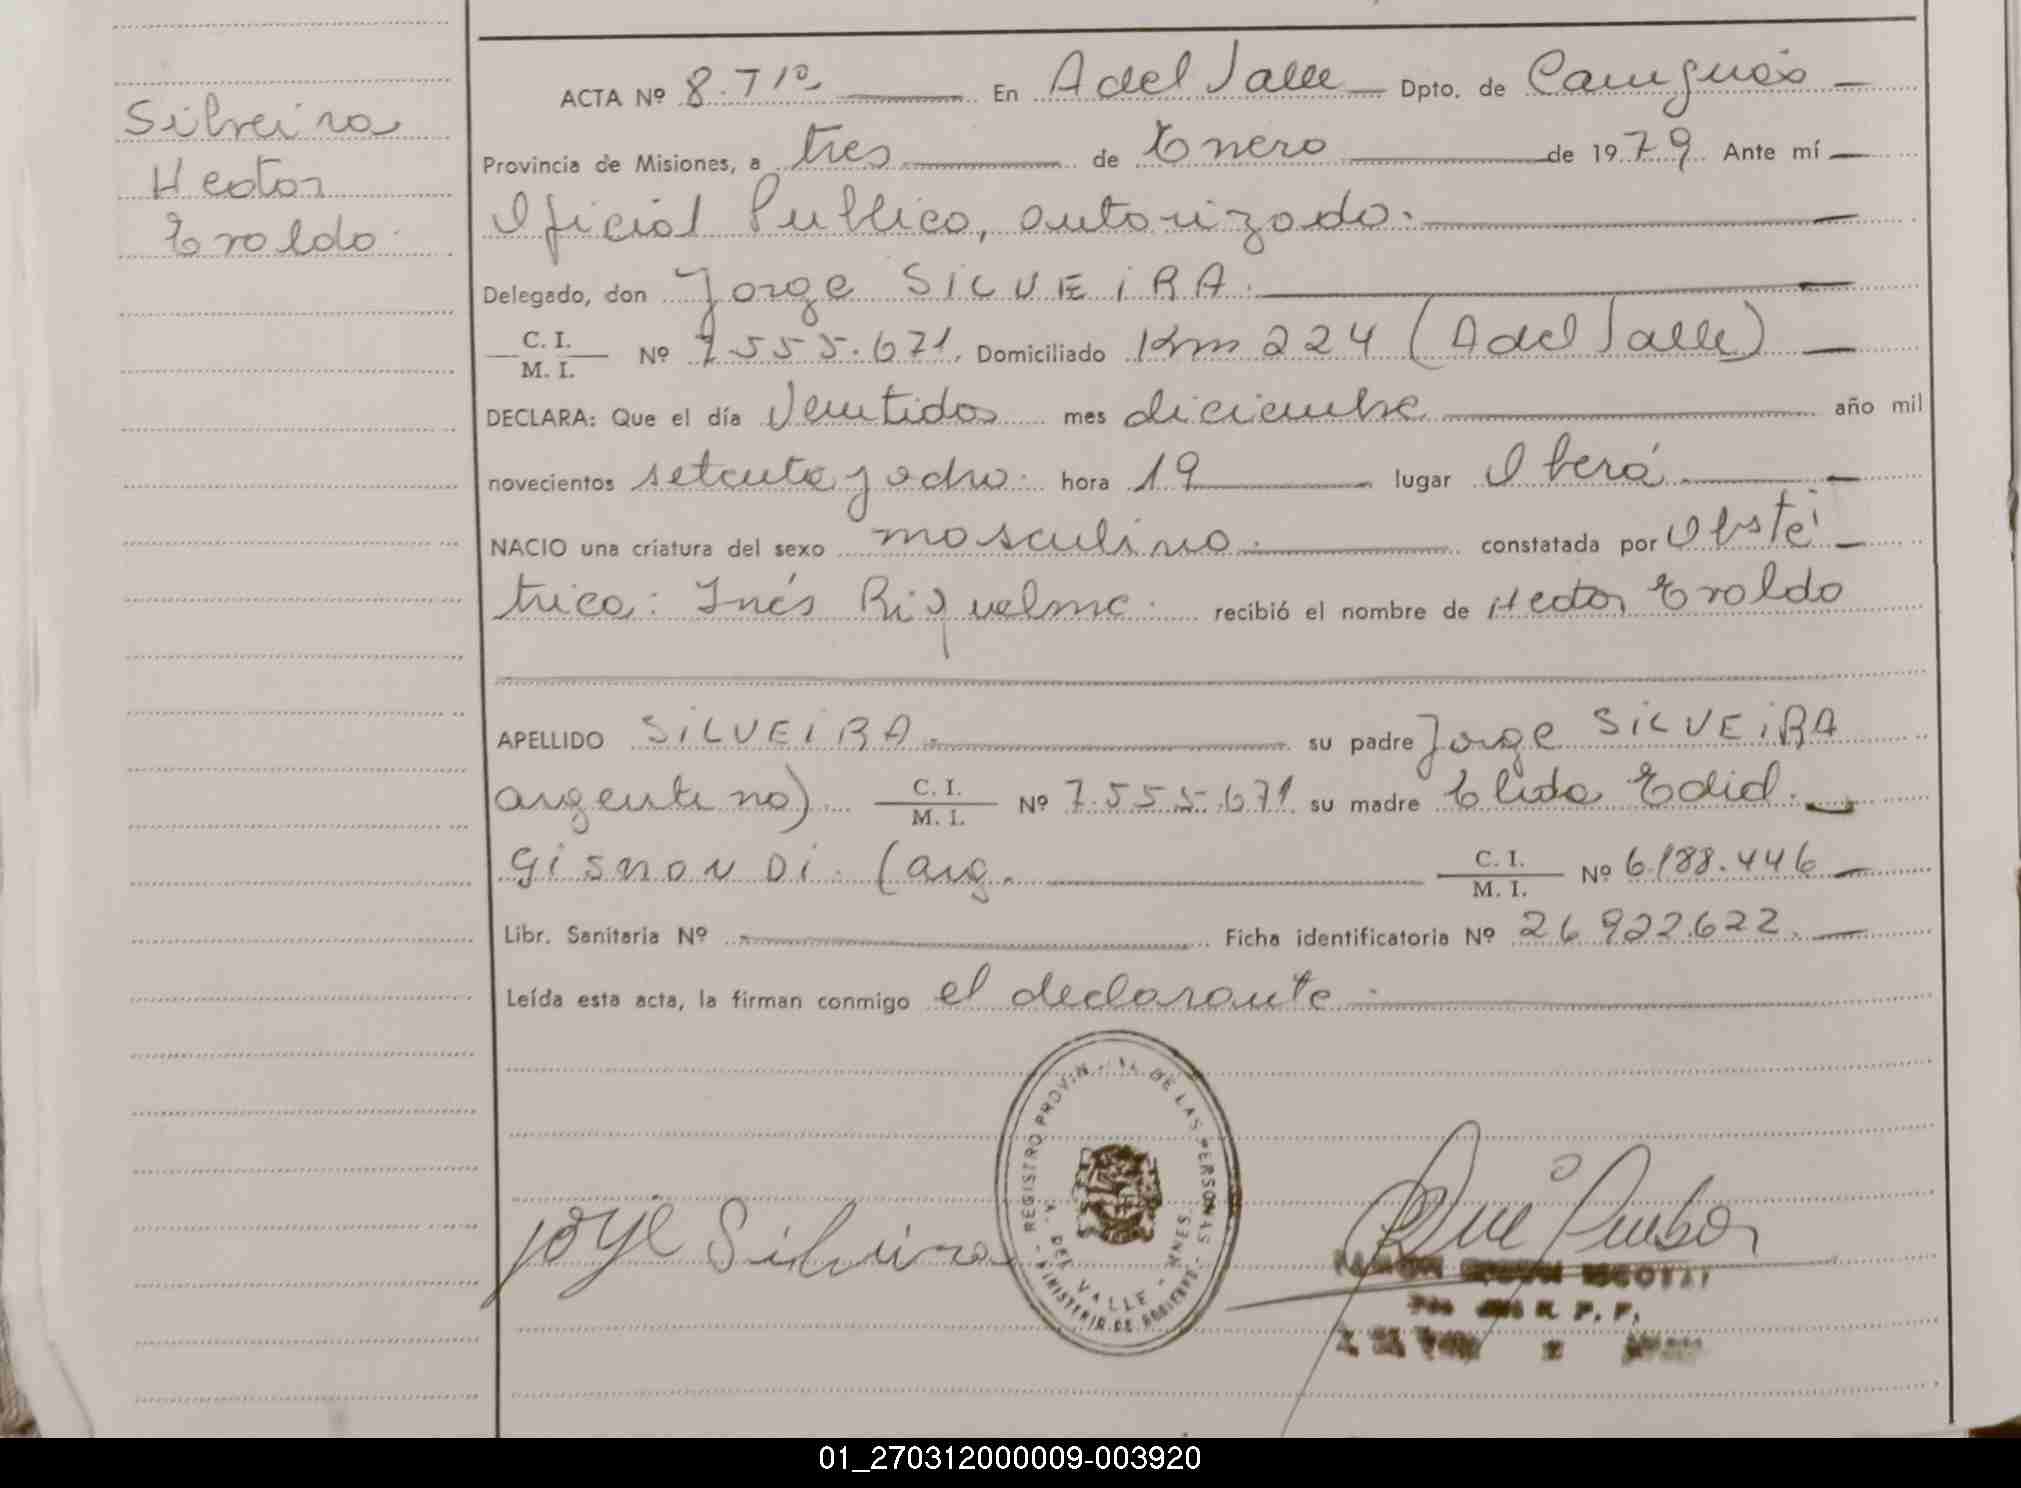 Silveira
Hector
Eroldo.
ACTA Nº 8. Tº En A del Valle Dpto. de Cainguás
Provincia de Misiones, a tres de Enero de 1979 Ante mí
Oficial Publico, autorizado.
Delegado, don Jorge SILVEIRA.
C. I.
M. I. Nº 7.555.671. Domiciliado Km 224 (A del Valle)
DECLARA: Que el día Veintidos mes diciembre año mil
novecientos setenta y ocho. hora 19 lugar Oberá
NACIO una criatura del sexo masculino. constatada por Obsté
trica: Inés Riquelme. recibió el nombre de Hector Eroldo
APELLIDO SILVEIRA. su padre Jorge SILVEIRA
argentino) C. I.
M. I. Nº 7.555.671 su madre Elida Edid.
Gismondi. (arg. C. I.
M. I. Nº 6.188.446
Libr. Sanitaria Nº Ficha identificatoria Nº 26.922.622.
Leída esta acta, la firman conmigo el declarante.
REGISTRO PROVINCIAL DE LAS PERSONAS
A. DEL VALLE - MNES.
MINISTERIO DE GOBIERNO
Jorge Silveira
R. P. P.
01_270312000009-003920